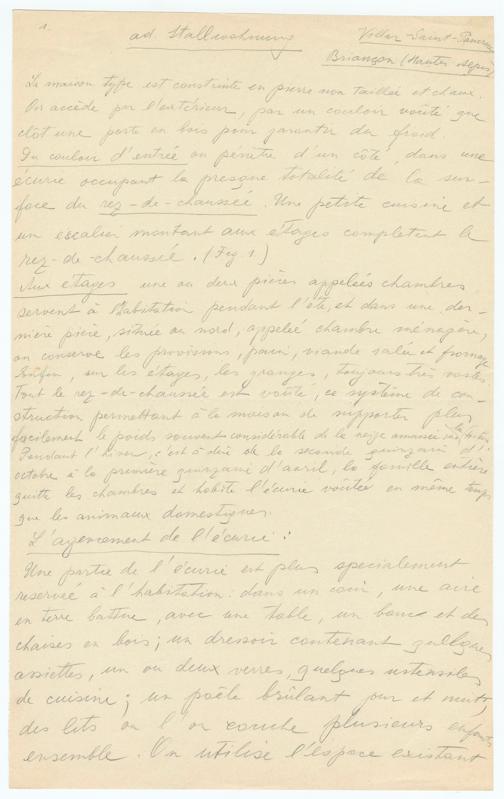 1.
ad. Stallwohnung
Villar-Saint-Pancrace
Briançon (Hautes Alpes)
La maison type est construite en pierre non taillée et chaux.
On accède par l'extérieur, par un couloir voûté que
clôt une porte en bois pour garantir du froid.
Du couloir d'entrée on pénètre d'un côté, dans une
écurie occupant la presque totalité de la sur-
face du rez-de-chaussée. Une petite cuisine et
un escalier montant aux étages complètent le
rez-de-chaussée. (Fig 1)
Aux étages une ou deux pièces appelées chambres
servent à l'habitation pendant l'été, et dans une der-
nière pièce, située au nord, appelée chambre ménagère,
on conserve les provisions, pain, viande salée et fromage
Enfin, sur les étages, les granges, toujours très vastes.
Tout le rez-de-chaussée est voûté, ce système de con-
struction permettant à la maison de supporter plus
facilement le poids souvent considérable de la neige amassée sur la toiture
Pendant l'hiver, c'est à dire de la seconde quinzaine d'
octobre à la première quinzaine d'avril, la famille entière
quitte les chambres et habite l'écurie voûtée en même temps
que les animaux domestiques.
L'agencement de l'écurie :
Une partie de l'écurie est plus spécialement
reservée à l'habitation : dans un coin, une aire
en terre battue, avec une table, un banc et des
chaises en bois ; un dressoir contenant quelques
assiettes, un ou deux verres, quelques ustensiles
de cuisine ; un poêle brûlant jour et nuit,
des lits où l'on couche plusieurs enfants
ensemble. On utilise l'espace existant